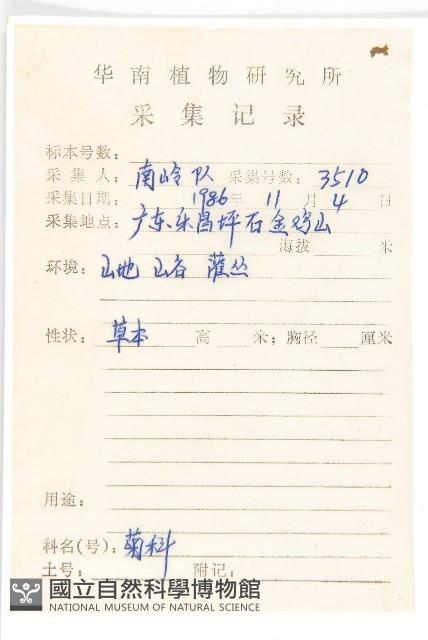 华南植物研究所
采集记录
标本号数：
采集人：南岭队 采集号数：3510
采集日期：1986年 11月 4日
采集地点：广东乐昌坪石金鸡山
海拔 米
环境：山地 山谷 灌丛
性状：草本 高 米；胸径 厘米
用途：
科名(号)：菊科
土号： 附记：
國立自然科學博物館
NATIONAL MUSEUM OF NATURAL SCIENCE